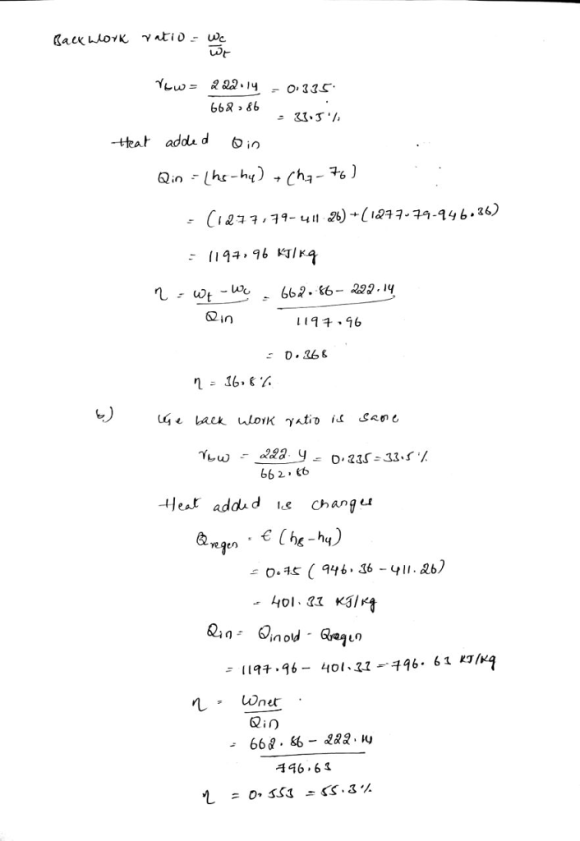 Back work ratio = wc/wt
rbw = 222.14/662.86 = 0.335
= 33.5%
Heat added Qin
Qin = (h5-h4) + (h7-76)
= (1277.79-411.26)+(1277.79-946.36)
= 1197.96 KJ/kg
η = wt-wc/Qin = 662.86-222.14/1197.96
= 0.368
η = 36.8%
b) Use back work ratio is same
rbw = 222.4/662.86 = 0.335=33.5%
Heat added is changes
Qregen = € (h8-h4)
= 0.75 (946.36-411.26)
= 401.33 KJ/kg
Qin = Qinold - Qregen
= 1197.96 - 401.33 = 796.63 KJ/kg
η = Wnet/Qin
= 662.86-222.14/796.63
η = 0.553 = 55.3%